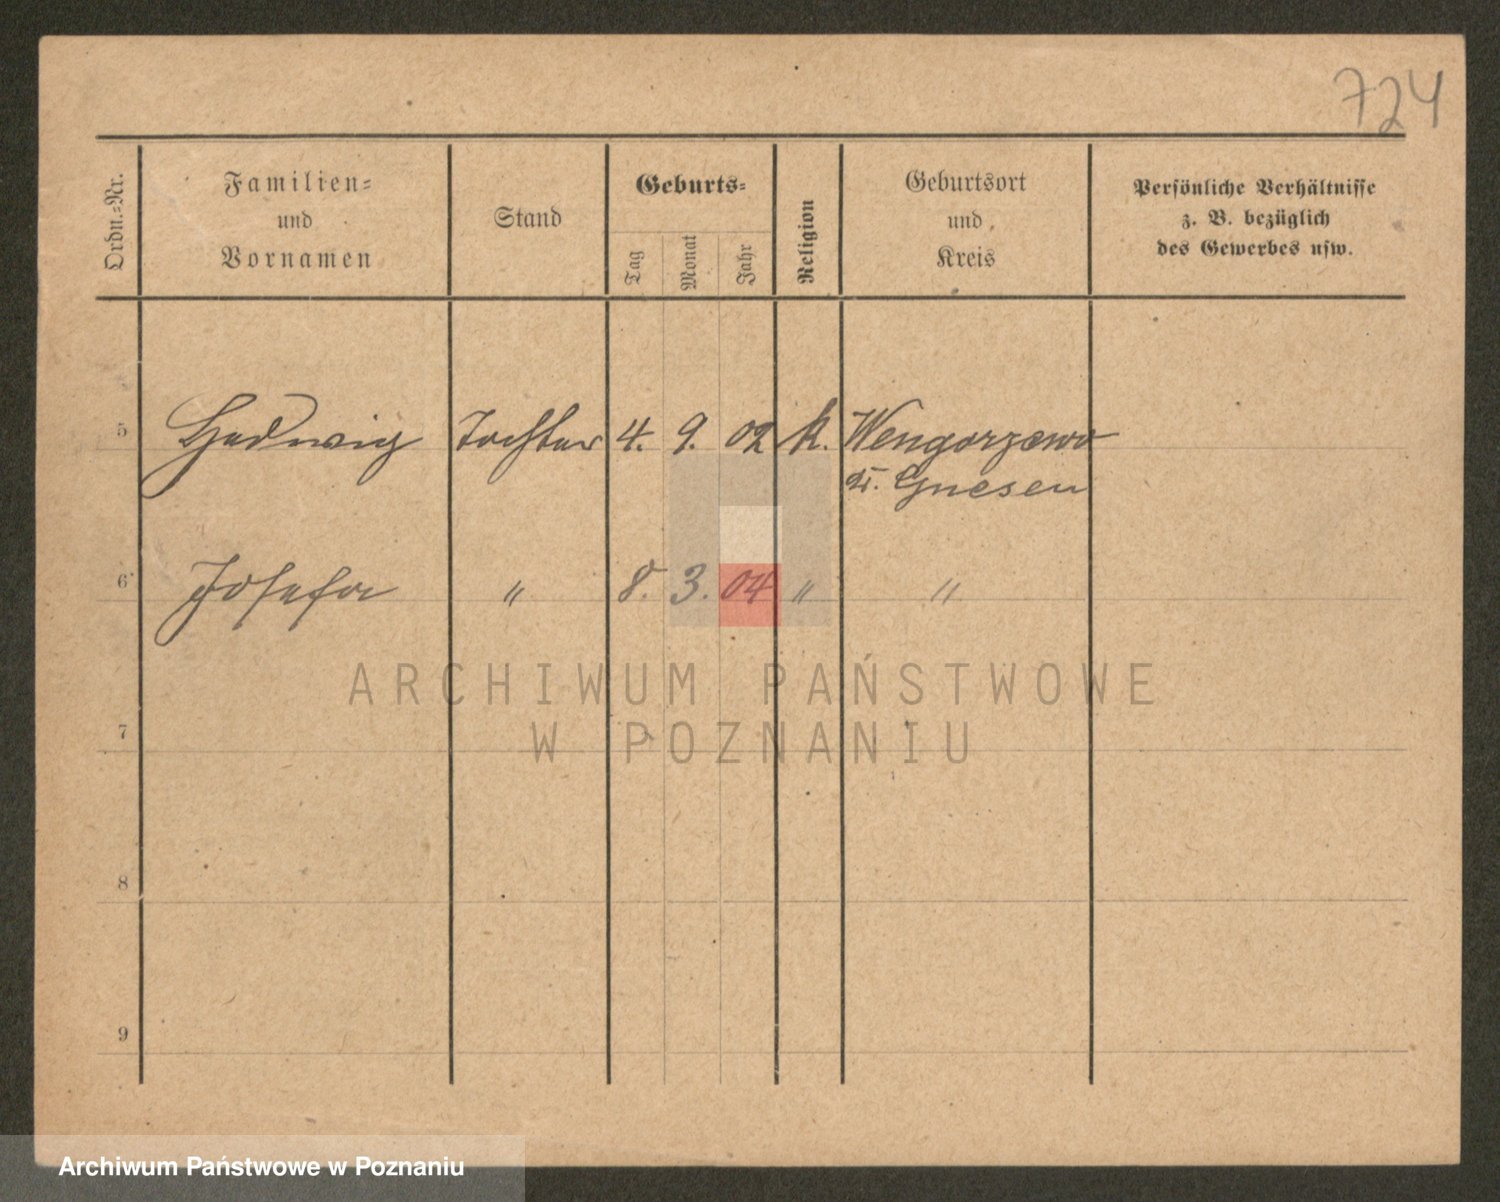 724
Ordn.-Nr.
Familien-
und
Vornamen
Stand
Geburts-
Tag
Monat
Jahr
Religion
Geburtsort
und
Kreis
Persönliche Verhältnisse
z. B. bezüglich
des Gewerbes usw.
5 Hedwig Tochter 4. 9. 02 k. Wengorzewo
Kr. Gnesen
6 Josefa " 8. 3. 04 " "
ARCHIWUM PAŃSTWOWE
W POZNANIU
7
8
9
Archiwum Państwowe w Poznaniu